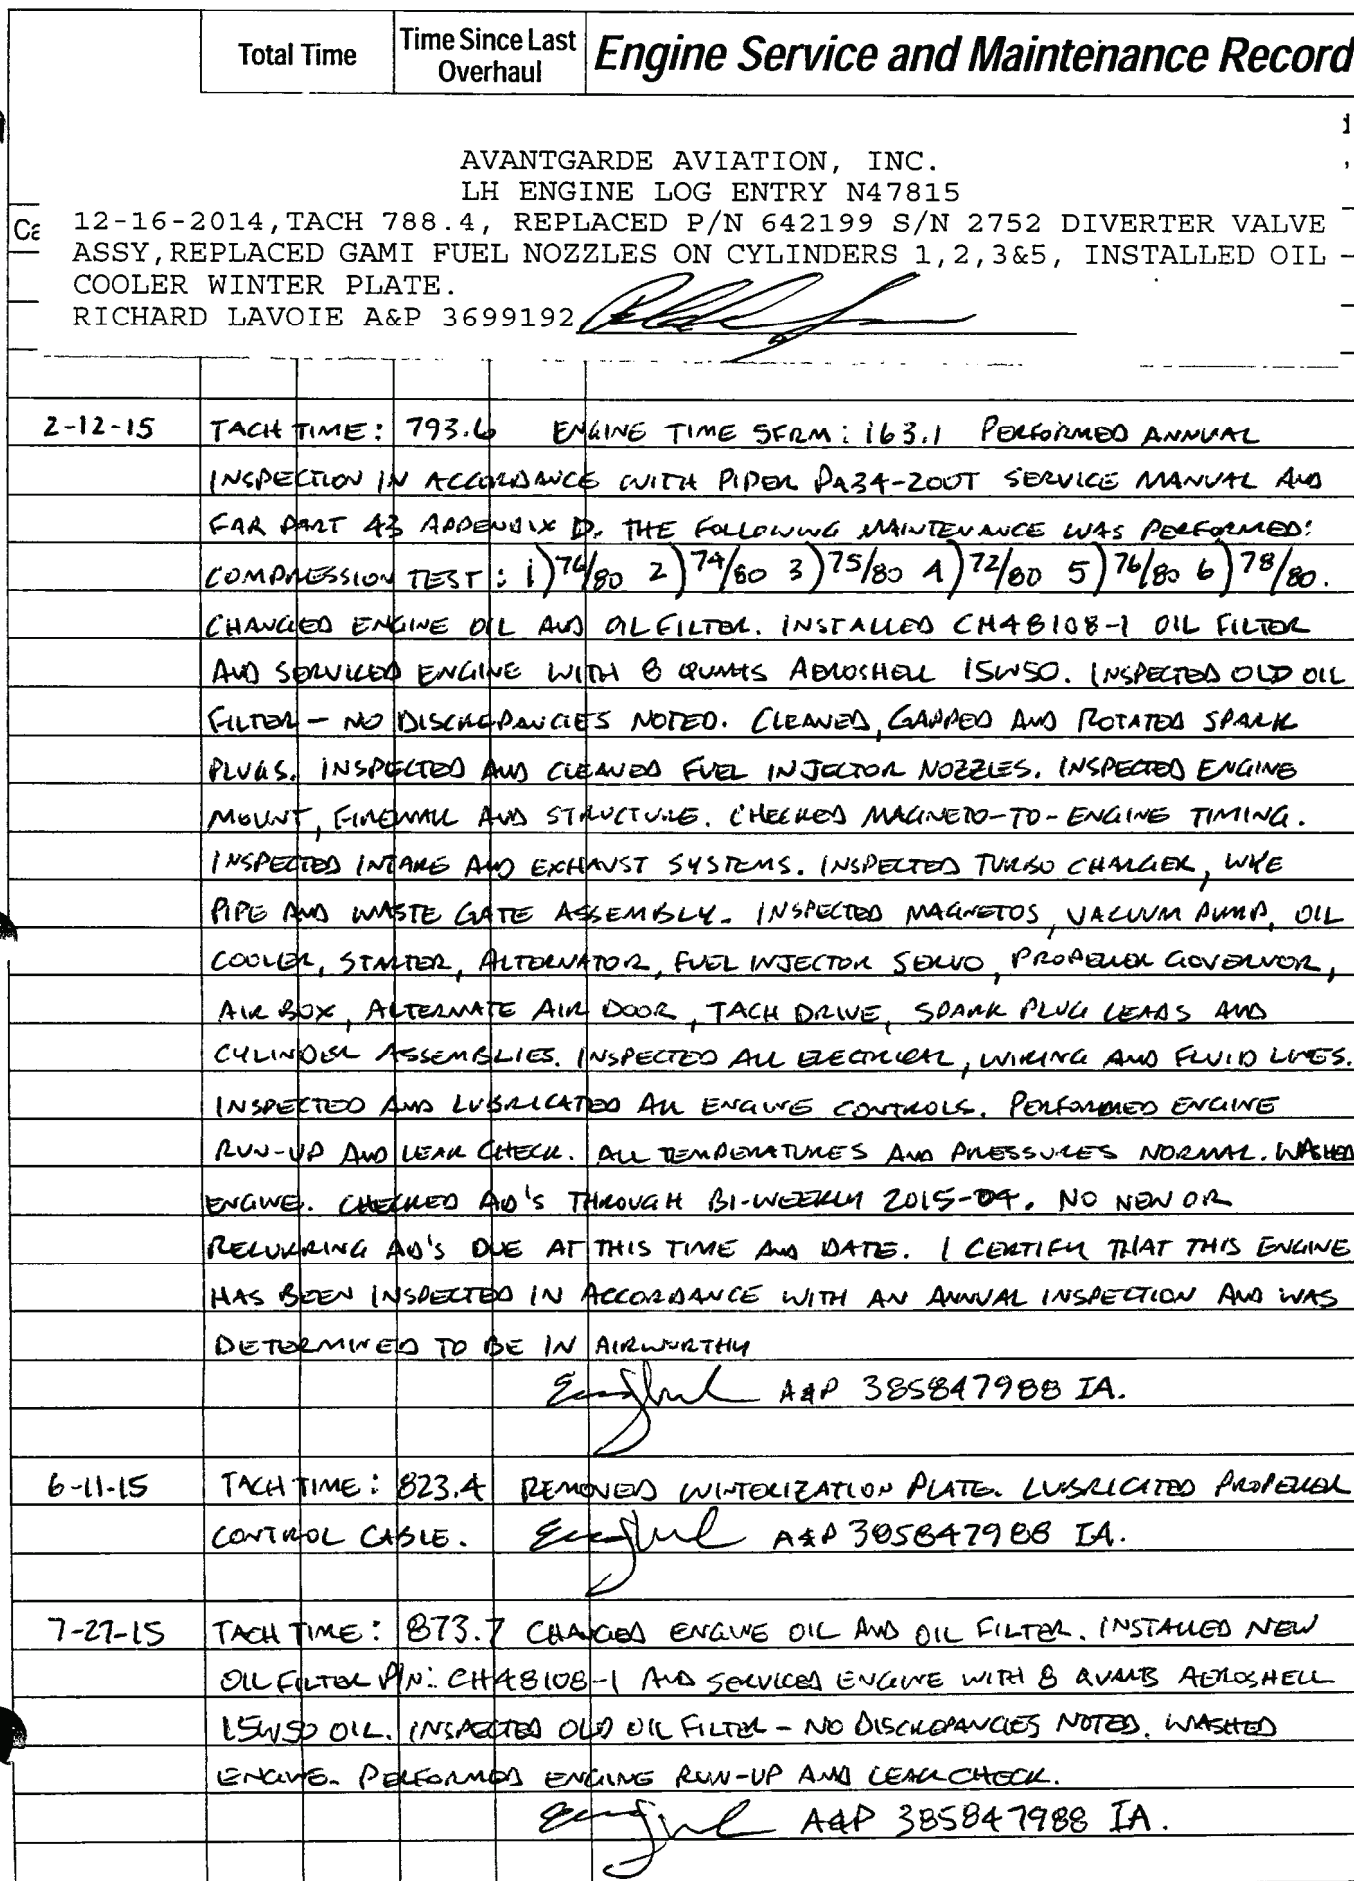 Total Time
Time Since Last Overhaul
Engine Service and Maintenance Record
AVANTGARDE AVIATION, INC.
LH ENGINE LOG ENTRY N47815
12-16-2014,TACH 788.4, REPLACED P/N 642199 S/N 2752 DIVERTER VALVE
ASSY,REPLACED GAMI FUEL NOZZLES ON CYLINDERS 1,2,3&5, INSTALLED OIL
COOLER WINTER PLATE.
RICHARD LAVOIE A&P 3699192
2-12-15 TACH TIME: 793.6 ENGINE TIME SFRM: 163.1 PERFORMED ANNUAL
INSPECTION IN ACCORDANCE WITH PIPER PA34-200T SERVICE MANUAL AND
FAR PART 43 APPENDIX D. THE FOLLOWING MAINTENANCE WAS PERFORMED:
COMPRESSION TEST: 1) 76/80 2) 74/80 3) 75/80 4) 72/80 5) 76/80 6) 78/80.
CHANGED ENGINE OIL AND OIL FILTER. INSTALLED CH48108-1 OIL FILTER
AND SERVICED ENGINE WITH 8 QUARTS AEROSHELL 15W50. INSPECTED OLD OIL
FILTER - NO DISCREPANCIES NOTED. CLEANED, GAPPED AND ROTATED SPARK
PLUGS. INSPECTED AND CLEANED FUEL INJECTOR NOZZLES. INSPECTED ENGINE
MOUNT, FIREWALL AND STRUCTURE. CHECKED MAGNETO-TO-ENGINE TIMING.
INSPECTED INTAKE AND EXHAUST SYSTEMS. INSPECTED TURBO CHARGER, WYE
PIPE AND WASTE GATE ASSEMBLY. INSPECTED MAGNETOS, VACUUM PUMP, OIL
COOLER, STARTER, ALTERNATOR, FUEL INJECTOR SERVO, PROPELLER GOVERNOR,
AIR BOX, ALTERNATE AIR DOOR, TACH DRIVE, SPARK PLUG LEADS AND
CYLINDER ASSEMBLIES. INSPECTED ALL ELECTRICAL, WIRING AND FLUID LINES.
INSPECTED AND LUBRICATED ALL ENGINE CONTROLS. PERFORMED ENGINE
RUN-UP AND LEAK CHECK. ALL TEMPERATURES AND PRESSURES NORMAL. WASHED
ENGINE. CHECKED AD'S THROUGH BI-WEEKLY 2015-04. NO NEW OR
RECURRING AD'S DUE AT THIS TIME AND DATE. I CERTIFY THAT THIS ENGINE
HAS BEEN INSPECTED IN ACCORDANCE WITH AN ANNUAL INSPECTION AND WAS
DETERMINED TO BE IN AIRWORTHY
A&P 385847988 IA.
6-11-15 TACH TIME: 823.4 REMOVED WINTERIZATION PLATE. LUBRICATED PROPELLER
CONTROL CABLE. A&P 385847988 IA.
7-27-15 TACH TIME: 873.7 CHANGED ENGINE OIL AND OIL FILTER. INSTALLED NEW
OIL FILTER P/N: CH48108-1 AND SERVICED ENGINE WITH 8 QUARTS AEROSHELL
15W50 OIL. INSPECTED OLD OIL FILTER - NO DISCREPANCIES NOTED. WASHED
ENGINE. PERFORMED ENGINE RUN-UP AND LEAK CHECK.
A&P 385847988 IA.